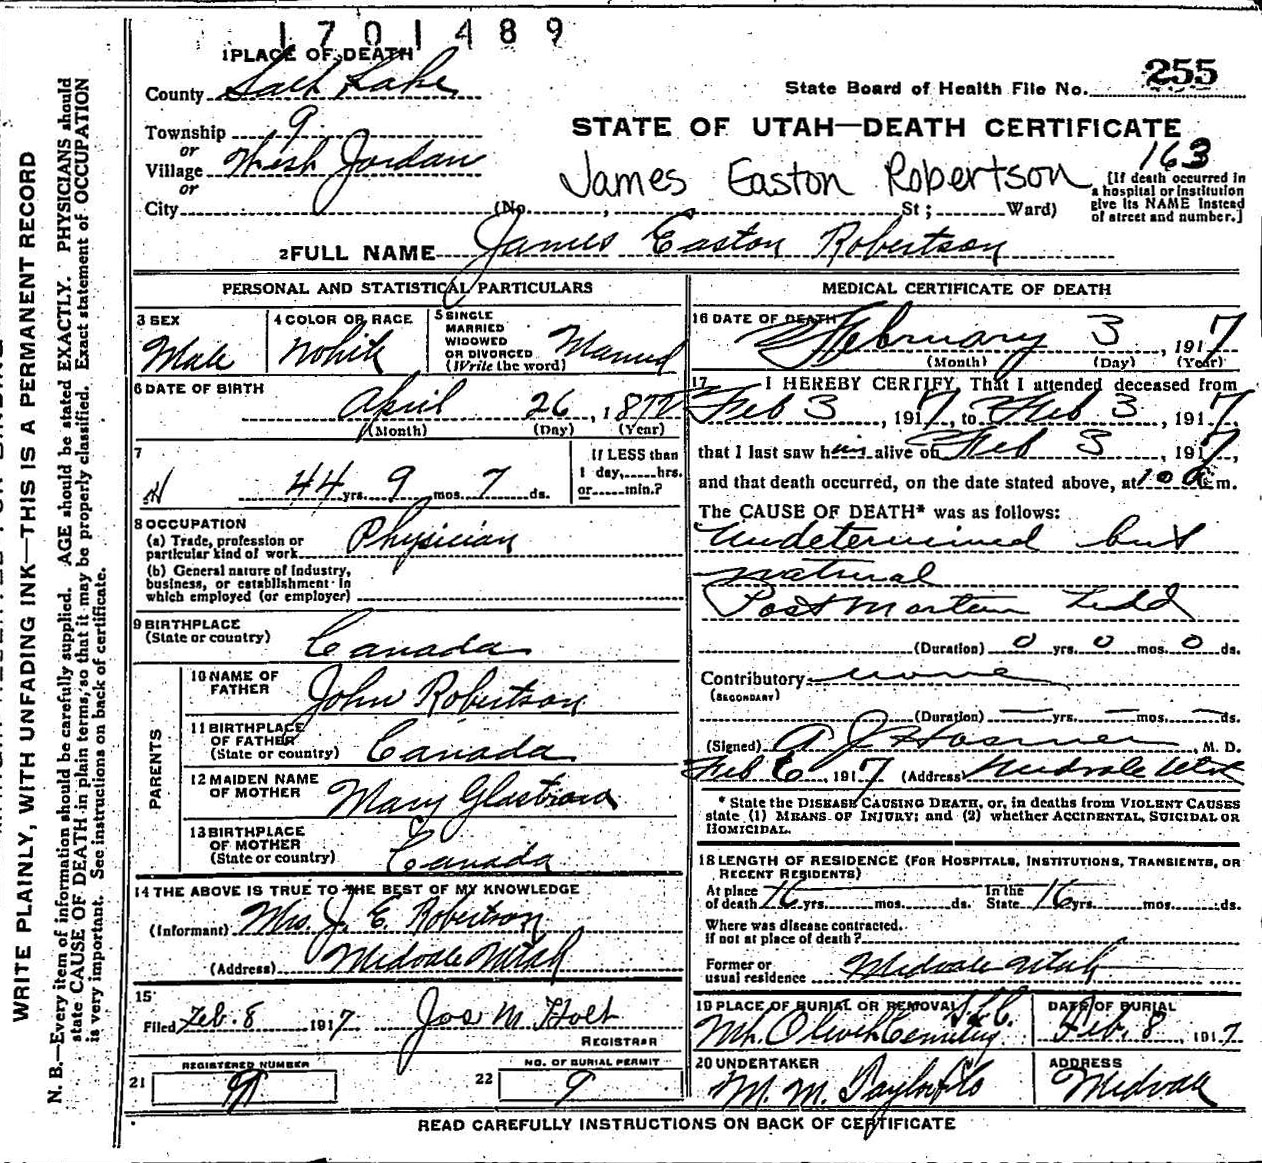 1701489
1 PLACE OF DEATH
County Salt Lake
State Board of Health File No. 255
Township 9
or
Village West Jordan
or
City (No. , St ; Ward)
STATE OF UTAH—DEATH CERTIFICATE
163
James Easton Robertson
[If death occurred in
a hospital or institution
give its NAME instead
of street and number.]
2 FULL NAME James Easton Robertson
PERSONAL AND STATISTICAL PARTICULARS
3 SEX
Male
4 COLOR OR RACE
White
5 SINGLE
MARRIED
WIDOWED
OR DIVORCED
(Write the word)
Married
6 DATE OF BIRTH
April 26, 1872
(Month) (Day) (Year)
7
44 yrs. 9 mos. 7 ds.
If LESS than
1 day, hrs.
or min.?
8 OCCUPATION
(a) Trade, profession or
particular kind of work Physician
(b) General nature of industry,
business, or establishment in
which employed (or employer)
9 BIRTHPLACE
(State or country) Canada
PARENTS
10 NAME OF
FATHER John Robertson
11 BIRTHPLACE
OF FATHER
(State or country) Canada
12 MAIDEN NAME
OF MOTHER Mary
13 BIRTHPLACE
OF MOTHER
(State or country) Canada
14 THE ABOVE IS TRUE TO THE BEST OF MY KNOWLEDGE
(Informant) Mrs. J. E. Robertson
(Address) Midvale Utah
15
Filed Feb. 8 1917 Jos M Holt
REGISTRAR
21 REGISTERED NUMBER
9
22 NO. OF BURIAL PERMIT
9
MEDICAL CERTIFICATE OF DEATH
16 DATE OF DEATH
February 3, 1917
(Month) (Day) (Year)
17 I HEREBY CERTIFY, That I attended deceased from
Feb 3, 1917, to Feb 3, 1917,
that I last saw him alive on Feb 3, 1917,
and that death occurred, on the date stated above, at 10 a m.
The CAUSE OF DEATH* was as follows:
Undetermined but
natural
Post Mortem held
(Duration) 0 yrs. 0 mos. 0 ds.
Contributory none
(SECONDARY)
(Duration) — yrs. — mos. — ds.
(Signed) A J Hosmer, M. D.
Feb 6, 1917 (Address) Midvale Utah
* State the DISEASE CAUSING DEATH, or, in deaths from VIOLENT CAUSES
state (1) MEANS OF INJURY; and (2) whether ACCIDENTAL, SUICIDAL OR
HOMICIDAL.
18 LENGTH OF RESIDENCE (FOR HOSPITALS, INSTITUTIONS, TRANSIENTS, OR
RECENT RESIDENTS)
At place
of death 16 yrs. mos. ds. In the
State 16 yrs. mos. ds.
Where was disease contracted.
if not at place of death?
Former or
usual residence Midvale Utah
19 PLACE OF BURIAL OR REMOVAL S.L.C.
Mt. Olivet Cemetery
DATE OF BURIAL
Feb. 8, 1917
20 UNDERTAKER
M. M. Taylor Co
ADDRESS
Midvale
READ CAREFULLY INSTRUCTIONS ON BACK OF CERTIFICATE
WRITE PLAINLY, WITH UNFADING INK—THIS IS A PERMANENT RECORD
N. B.—Every item of information should be carefully supplied. AGE should be stated EXACTLY. PHYSICIANS should
state CAUSE OF DEATH in plain terms, so that it may be properly classified. Exact statement of OCCUPATION
is very important. See instructions on back of certificate.